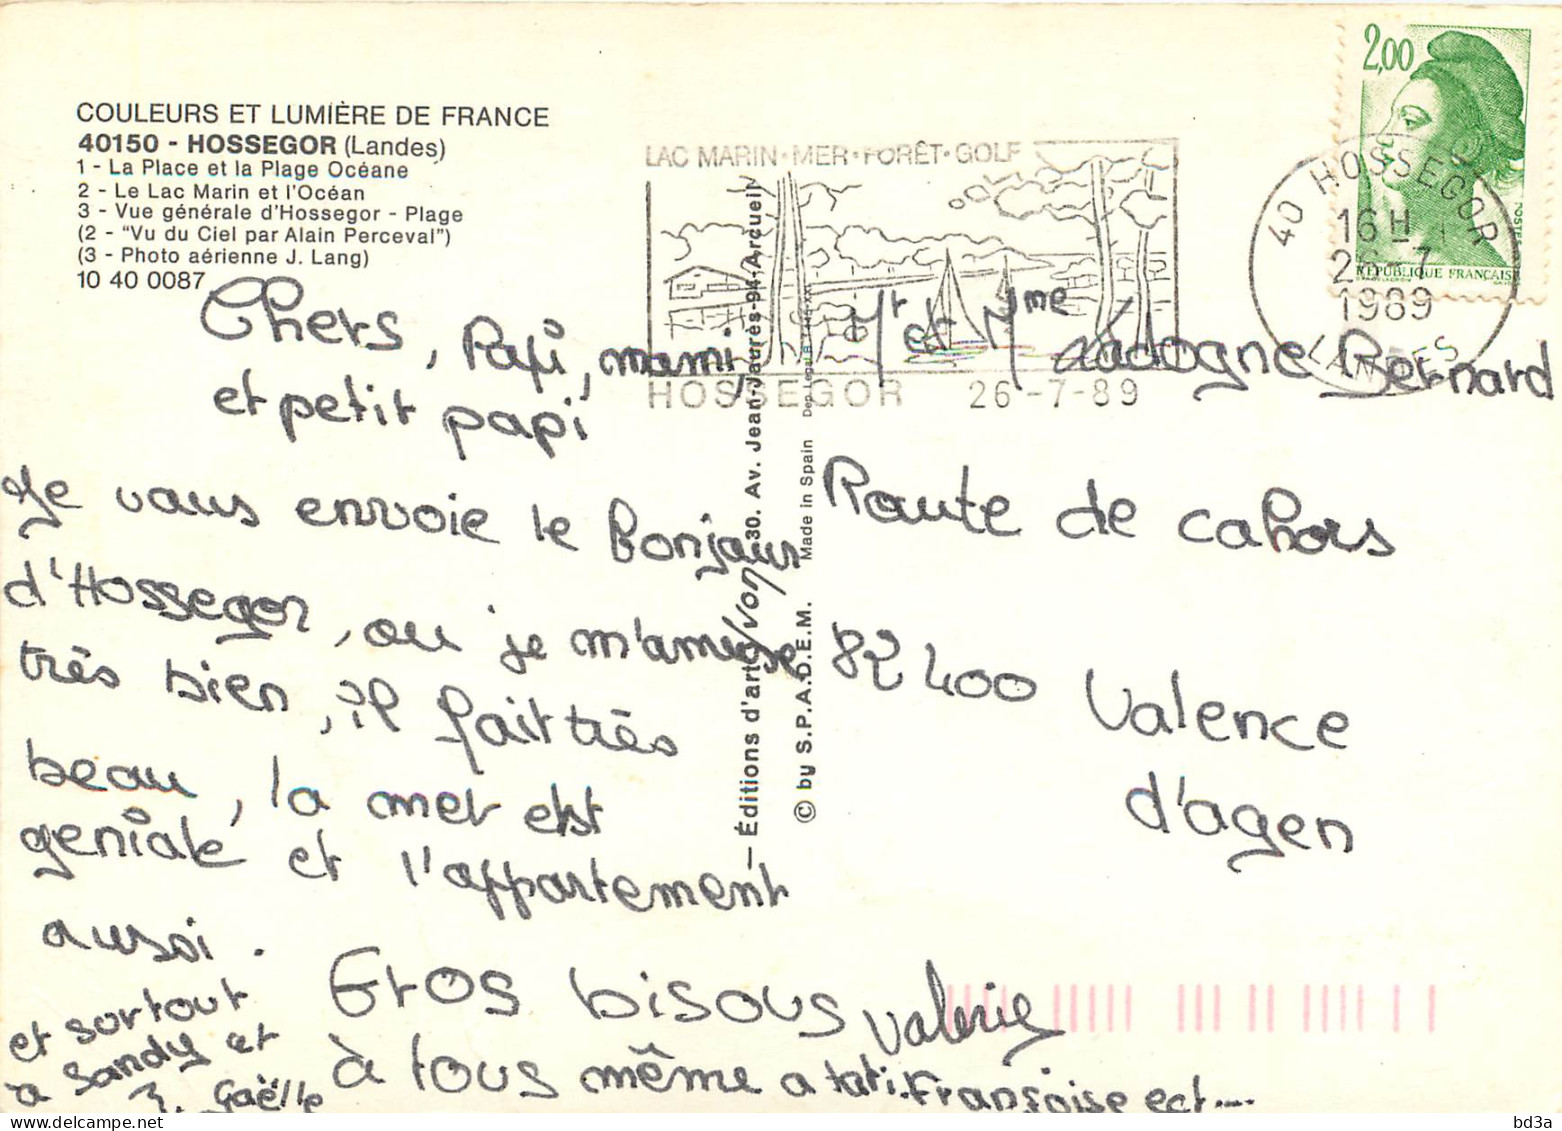 COULEURS ET LUMIÈRE DE FRANCE
40150 - HOSSEGOR (Landes)
1 - La Place et la Plage Océane
2 - Le Lac Marin et l'Océan
3 - Vue générale d'Hossegor - Plage
(2 - "Vu du Ciel par Alain Perceval")
(3 - Photo aérienne J. Lang)
10 40 0087
LAC MARIN·MER·FORÊT·GOLF
HOSSEGOR 26-7-89
2,00
POSTES
RÉPUBLIQUE FRANÇAISE
40 HOSSEGOR
16 H
26-7
1989
LANDES
Chers, Papi, mami,
et petit papi
Je vous envoie le bonjour
d'Hossegor, ou je m'amuse
très bien, il fait très
beau, la mer est
geniale et l'appartement
aussi.
Gros bisous
à tous même a tati Françoise ect....
Valerie
et sortout
a Sandy et
Gaëlle
— Éditions d'art yvon 30. Av. Jean-Jaurès-94-Arcueil
© by S.P.A.D.E.M. Made in Spain
Mr et Mme Ladogne Bernard
Route de cahors
82400 Valence
d'agen
bd3a